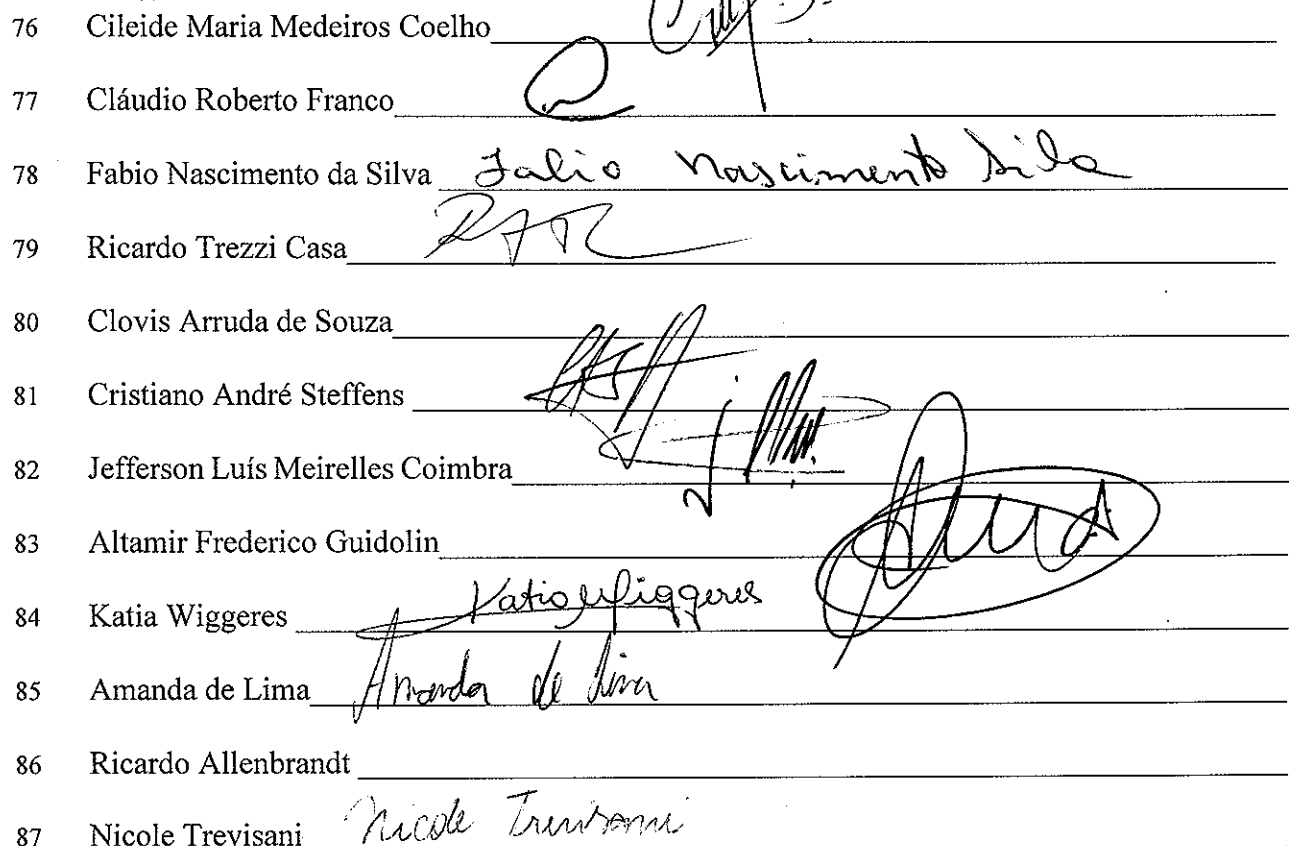 76 Cileide Maria Medeiros Coelho
77 Cláudio Roberto Franco
78 Fabio Nascimento da Silva Fabio Nascimento Silva
79 Ricardo Trezzi Casa
80 Clovis Arruda de Souza
81 Cristiano André Steffens
82 Jefferson Luís Meirelles Coimbra
83 Altamir Frederico Guidolin
84 Katia Wiggeres Katia Wiggeres
85 Amanda de Lima Amanda de Lima
86 Ricardo Allenbrandt
87 Nicole Trevisani Nicole Trevisani